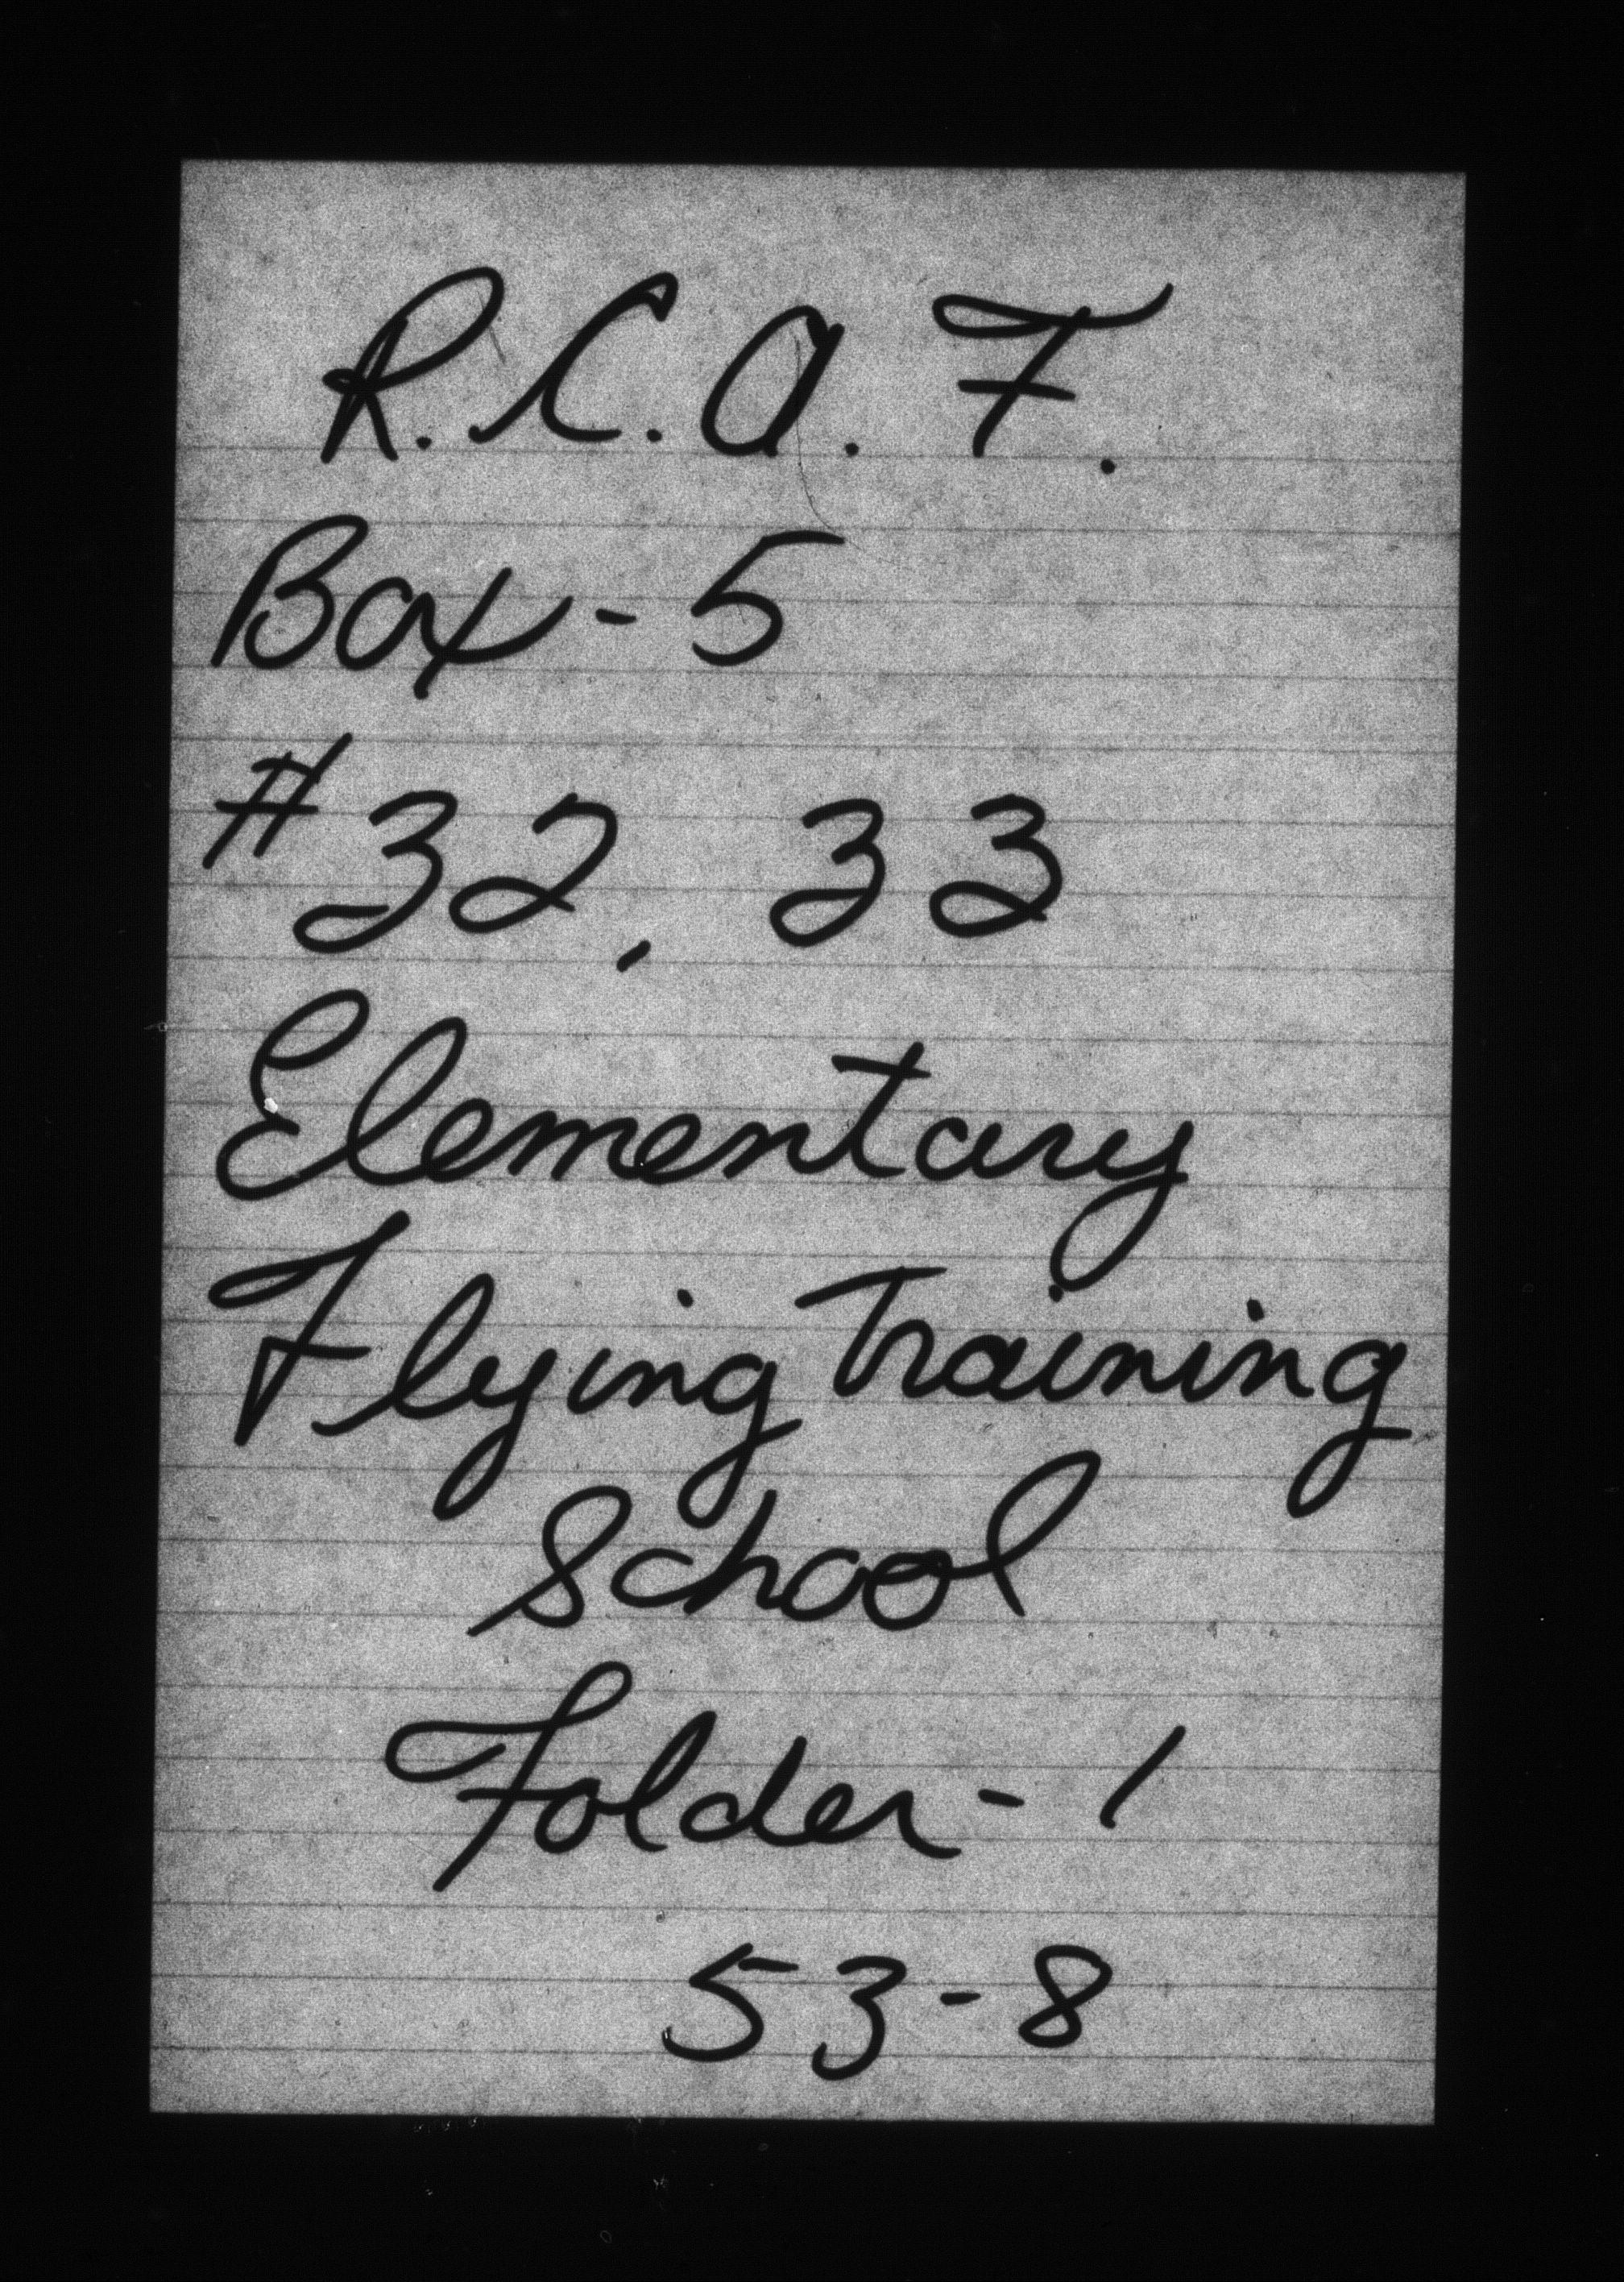 R.C.A.F.
Box - 5
# 32, 33
Elementary
Flying Training
School
Folder - 1
53-8